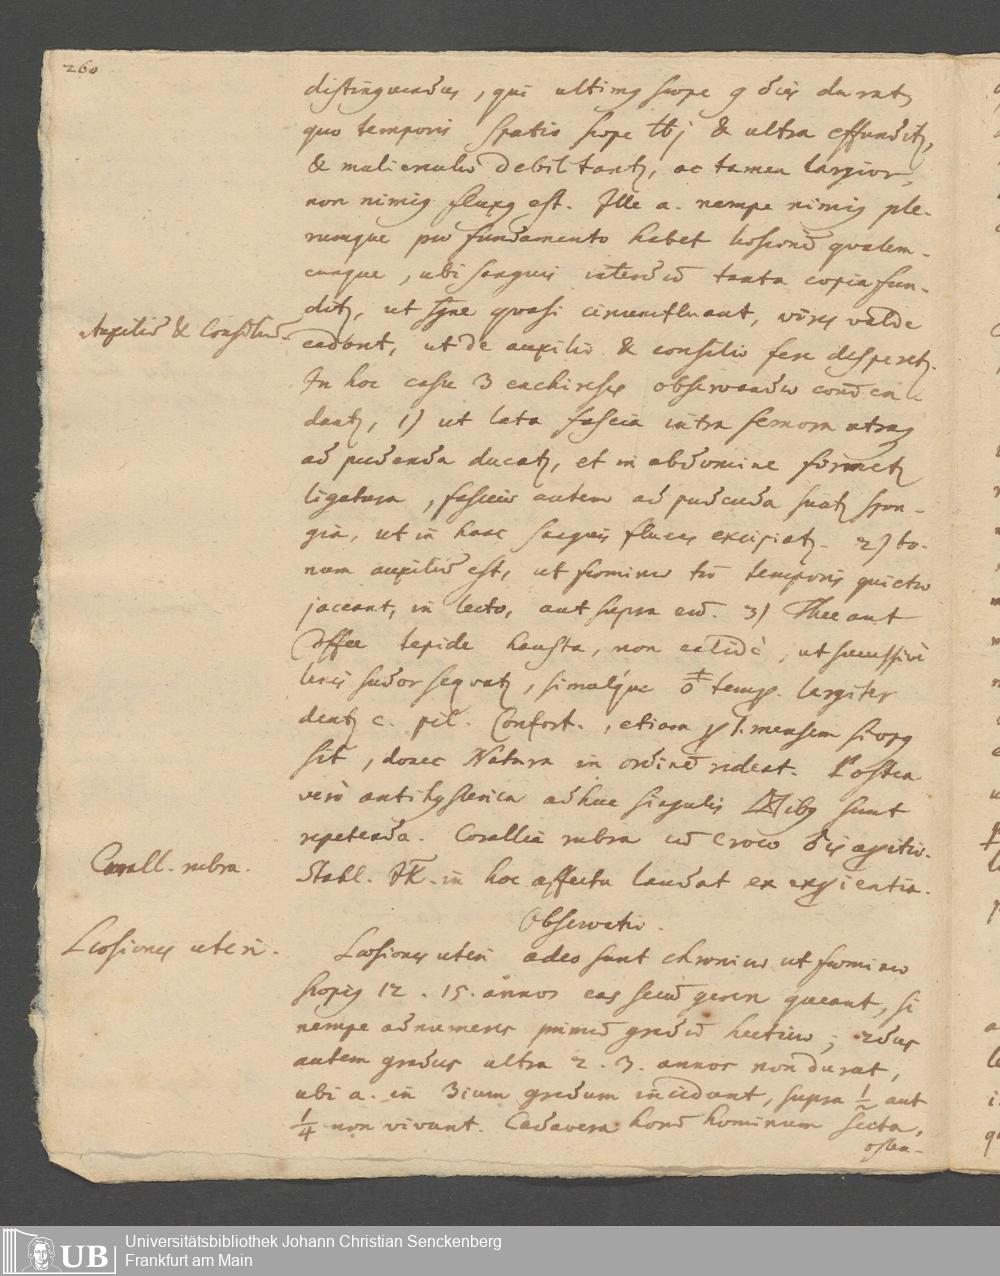 260
distinguendus, qui ultimus sæpe 9 dies durat,
quo temporis spatio sæpe ℔j & ultra effunditur,
& mulierculæ debilitantur, ac tamen largior,
non nimius fluxus est. Ille a. nempe nimius ple-
rumque pro fundamento habet læsionē qualem-
cunque, ubi sanguis interdū tanta copia fun-
ditur, ut sgne quasi circumfluant, vires valde
Auxiliū & Consiliū.
cadant, ut de auxilio & consilio fere desperetur.
In hoc casu 3 enchireses observandæ
dantur, 1) ut lata fascia intra femora utraque
ad pudenda ducatur, et in abdomine firmetur
ligatura, fasciæ autem ad pudenda spon-
gia, ut in hanc sanguis fluens excipiatur. 2) bo-
num auxiliū est, ut fæminæ temporis quietæ
jaceant, in lecto, aut supra eū. 3) Thee aut
Coffee tepide hausta, non calidè, ut successivè
lenis sudor sequatur, simulque temp. largiter
dentur c. pil. Confort., etiam p 1. mensem si opus
sit, donec Natura in ordinē redeat. Postea
verò antihysterica adhuc singulis sunt
repetenda. Corallia rubra cū Croco
Corall. rubra.
Stahl. in hoc affectu laudat ex experientia.
Observatio.
Læsiones uteri.
Læsiones uteri adeo sunt chronicæ ut fæminæ
sæpius 12. 15. annos eas secū gerere queant, si
nempe adnumeres primū gradū hecticæ; 2dus
autem gradus ultra 2. 3. annos non durat,
ubi a. in 3ium gradum incidunt, supra ½ aut
¼ non vivunt. Cadavera horū hominum secta,
osten-
UB
Universitätsbibliothek Johann Christian Senckenberg
Frankfurt am Main